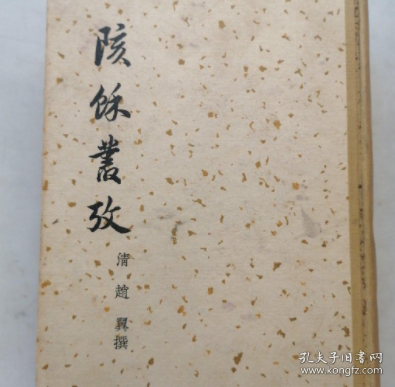 陔餘叢攷
清趙翼撰
孔夫子旧书网
www.kongfz.com